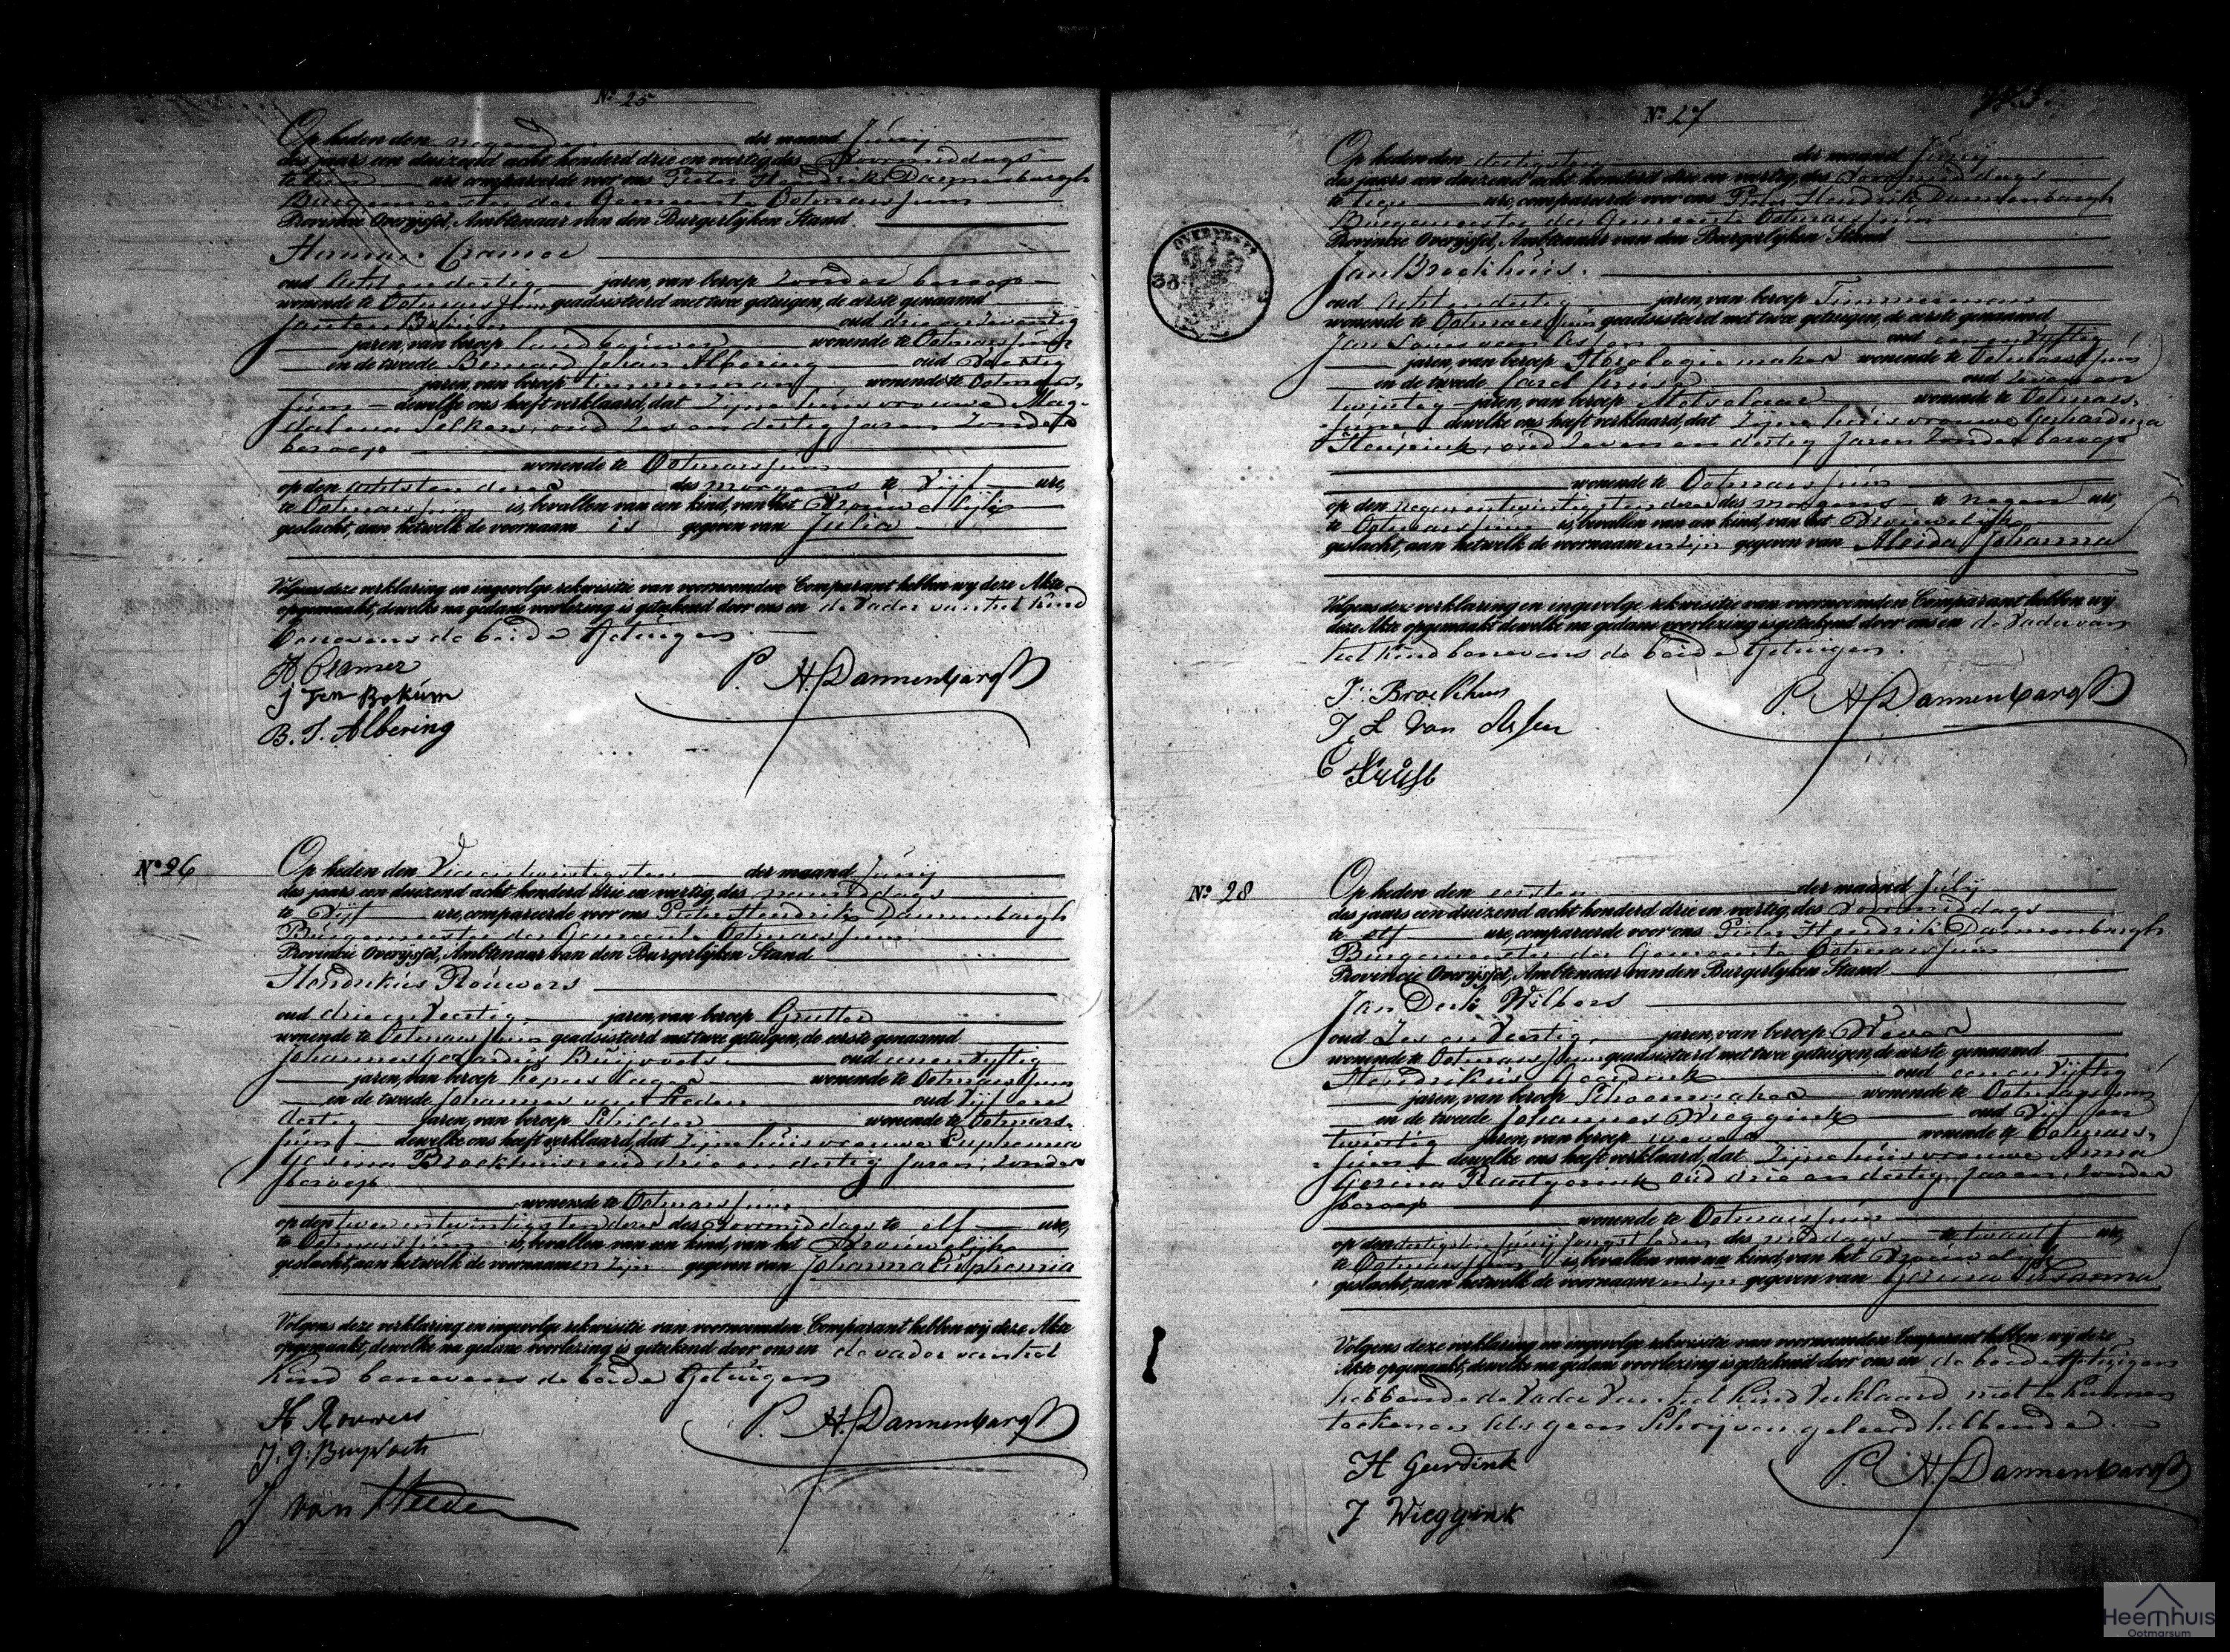 N.o 25
Op heden den negenden der maand Junij
des jaars een duizend acht honderd drie en veertig des Voormiddags
te tien ure compareerde voor ons Pieter Hendrik Dannenbargh
Burgemeester der Gemeente Ootmarssum
Provincie Overijssel, Ambtenaar van den Burgerlijken Stand
Herman Cramer
oud Acht en dertig jaren, van beroep zonder beroep
wonende te Ootmarssum geadsisteerd met twee getuigen, de eerste genaamd
Jan ten Bokum oud drie en zeventig
jaren, van beroep landbouwer wonende te Ootmarssum
en de tweede Bernard Johan Albering oud Veertig
jaren, van beroep Timmerman wonende te Ootmars-
sum dewelke ons heeft verklaard, dat Zijne huisvrouwe Mag-
dalena oud Zes en dertig Jaren Zonder
beroep
wonende te Ootmarssum
op den achtsten dezer des morgens te Vijf ure,
te Ootmarssum is bevallen van een kind, van het Vrouwelijk
geslacht, aan hetwelk de voornaam is gegeven van Julia
Volgens deze verklaring en ingevolge rekwisitie van voornoemden Comparant hebben wij deze Akte
opgemaakt, dewelke na gedane voorlezing is getekend door ons en de Vader van het Kind
benevens de beide Getuigen
H Cramer
J Ten Bokum
B. J. Albering
P. H. Dannenbargh
N.o 26
Op heden den Vierentwintigsten der maand Junij
des jaars een duizend acht honderd drie en veertig, des namiddags
te Vijf ure, compareerde voor ons Pieter Hendrik Dannenbargh
Burgemeester der Gemeente Ootmarssum
Provincie Overijssel, Ambtenaar van den Burgerlijken Stand
Hendrikus Rouwers
oud drie en Veertig jaren, van beroep Grutter
wonende te Ootmarssum geadsisteerd met twee getuigen, de eerste genaamd
Johannes Gerhardus Buijvoets oud eenenvijftig
jaren, van beroep Koperslager wonende te Ootmarssum
en de tweede Johannes van Heden oud Vijf en
dertig jaren, van beroep Schilder wonende te Ootmars-
sum dewelke ons heeft verklaard, dat Zijne huisvrouwe Euphemia
Gesina Broekhuis oud drie en dertig Jaren, zonder
beroep
wonende te Ootmarssum
op den twee entwintigsten dezer des Voormiddags te elf ure,
te Ootmarssum is bevallen van een kind, van het Vrouwelijk
geslacht, aan hetwelk de voornaamen zijn gegeven van Johanna Euphemia
Volgens deze verklaring en ingevolge rekwisitie van voornoemden Comparant hebben wij deze Akte
opgemaakt, dewelke na gedane voorlezing is getekend door ons en de vader van het
Kind benevens de beide Getuigen
H Rouwers
J. G. Buyvoets
J van Heeden
P. H. Dannenbargh
N.o 27
Op heden den dertigsten der maand Junij
des jaars een duizend acht honderd drie en veertig, des Voormiddags
te tien ure, compareerde voor ons Pieter Hendrik Dannenbargh
Burgemeester der Gemeente Ootmarssum
Provincie Overijssel, Ambtenaar van den Burgerlijken Stand
Jan Broekhuis.
oud Acht en dertig jaren, van beroep Timmerman
wonende te Ootmarssum geadsisteerd met twee getuigen, de eerste genaamd
Jan Louis van Assen oud een en Vijftig
jaren, van beroep Horologie maker wonende te Ootmarssum
en de tweede Carel Kruse oud zeven en
twintig jaren, van beroep Metselaar wonende te Ootmars-
sum dewelke ons heeft verklaard, dat Zijne huisvrouwe Gerhardina
oud zeven en dertig Jaren Zonder beroep
wonende te Ootmarssum
op den negen entwintigsten dezer des morgens te negen ure,
te Ootmarssum is bevallen van een kind, van het Vrouwelijk
geslacht, aan hetwelk de voornaamen zijn gegeven van Aleida Johanna
Volgens deze verklaring en ingevolge rekwisitie van voornoemden Comparant hebben wij
deze Akte opgemaakt dewelke na gedane voorlezing is getekend door ons en de Vader van
het Kind benevens de beide Getuigen.
J. Broekhuis
J. L van Assen
C Kruse
P. H. Dannenbargh
N.o 28
Op heden den eersten der maand Julij
des jaars een duizend acht honderd drie en veertig, des Voormiddags
te elf ure, compareerde voor ons Pieter Hendrik Dannenbargh
Burgemeester der Gemeente Ootmarssum
Provincie Overijssel, Ambtenaar van den Burgerlijken Stand
Jan Derk Wilbers
oud Zes en Veertig jaren, van beroep Wever
wonende te Ootmarssum geadsisteerd met twee getuigen, de eerste genaamd
Hendrikus Geerdink oud een en Vijftig
jaren, van beroep Schoenmaker wonende te Ootmarssum
en de tweede Johannes Wieggink oud Vijf en
twintig jaren, van beroep wever wonende te Ootmars-
sum dewelke ons heeft verklaard, dat Zijne huisvrouwe Anna
Gesina Raatgerink oud drie en dertig Jaren, zonder
beroep
wonende te Ootmarssum
op den dertigsten Junij Jongstleden des middags te twaalf ure,
te Ootmarssum is bevallen van een kind, van het Vrouwelijk
geslacht, aan hetwelk de voornaamen zijn gegeven van Gesina
Volgens deze verklaring en ingevolge rekwisitie van voornoemden Comparant hebben wij deze
Akte opgemaakt, dewelke na gedane voorlezing is getekend door ons en de beide Getuigen
hebbende de Vader Van het Kind Verklaard niet te kunnen
teekenen als geen Schrijven geleerd hebbende
H Geerdink
J Wieggink
P. H. Dannenbargh
Heemhuis
Ootmarsum